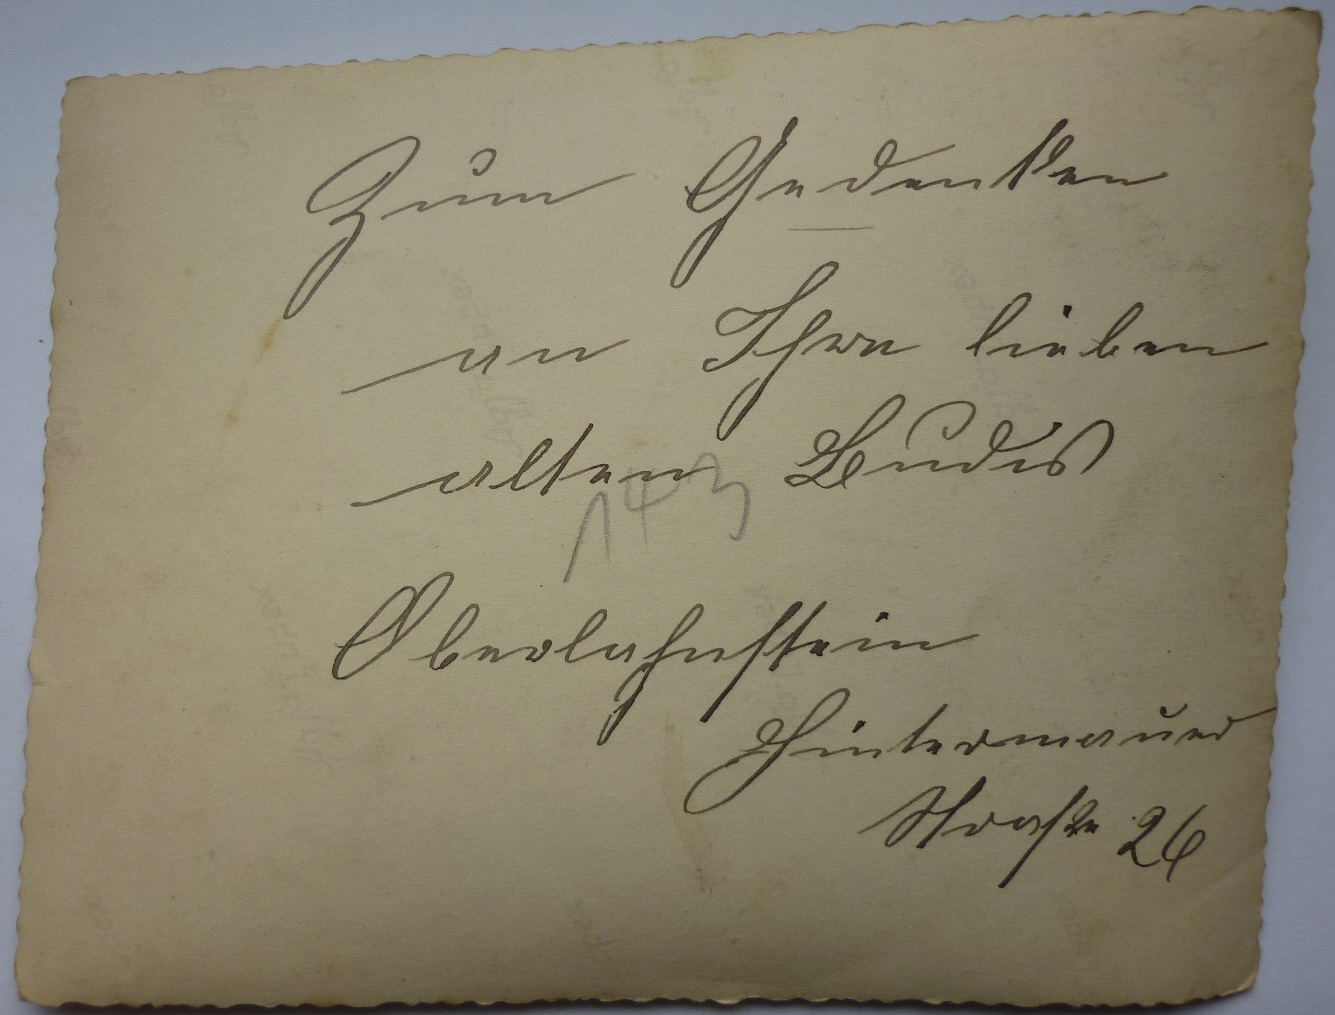 Zum Gedenken
an Ihre lieben
alten Budis
143
Oberlahnstein
Hintermauer
Straße 26